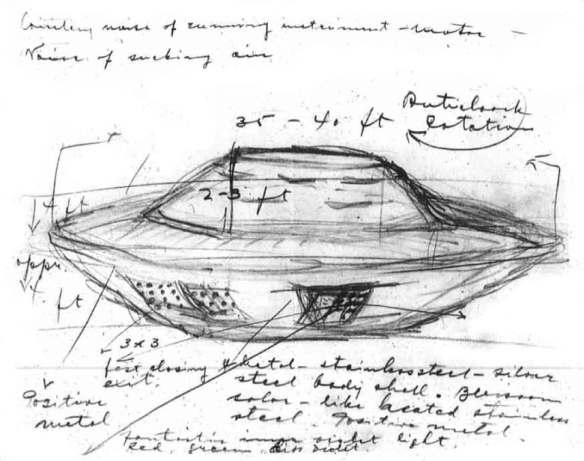 noise of running instrument - motor -
Noise of sucking air
35 - 40 ft
Anticlock
rotation
2-3 ft
4 ft
appr.
4. ft
3x3
fast closing
exit.
Positive
metal
metal - stainless steel - silver
steel body shell.
color - like heated stainless
steel. Positive metal.
inner light.
red. green